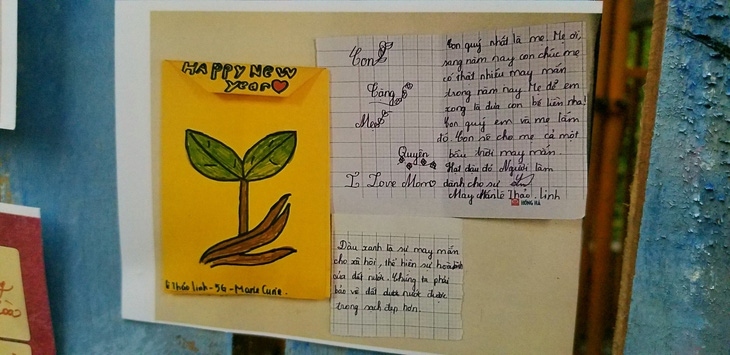 HAPPY NEW
YEAR
Thảo Linh - 5G - Marie Curie.
Con
Tặng
Mẹ
Quyên
I Love Mom
Con quý nhất là mẹ. Mẹ ơi,
sang năm nay con chúc mẹ
có thật nhiều may mắn
trong năm nay Mẹ đẻ em
xong là đưa con bế liền nha!
Con quý em và mẹ lắm
đó. Con sẽ cho mẹ cả một
bầu trời may mắn.
Hạt đậu đỏ Người làm
dành cho sự
May Mắn Lê Thảo Linh
HỒNG HÀ
Đậu xanh là sự may mắn
cho xã hội, thể hiện sự
của đất nước. Chúng ta phải
bảo vệ đất nước được
trong sạch đẹp hơn.